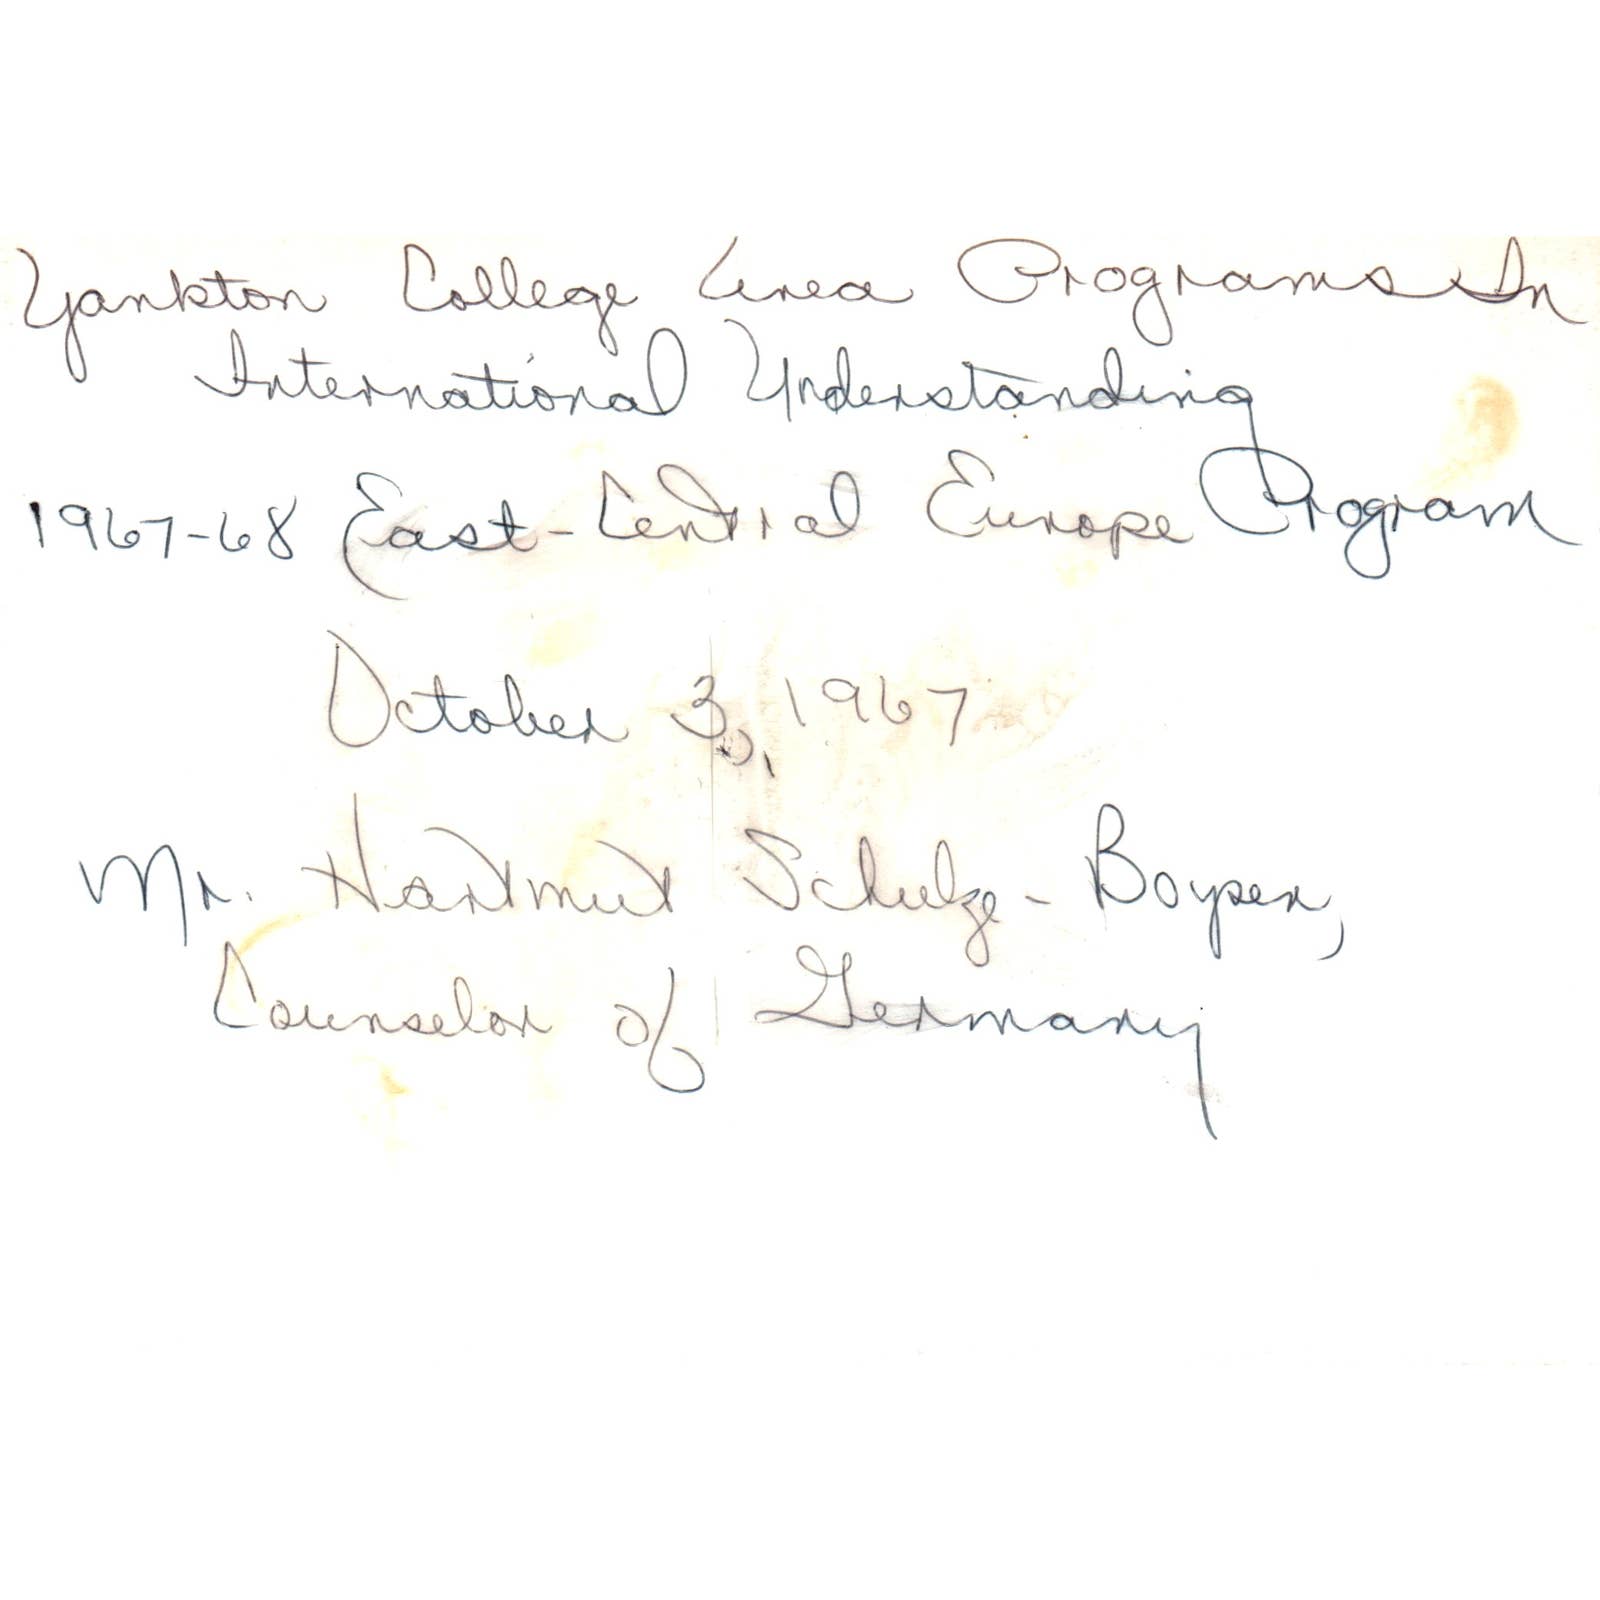 Yankton College Area Programs In
International Understanding
1967-68 East-Central Europe Program
October 3, 1967
Mr. Hartmut Schulze-Boysen,
Counselor of Germany